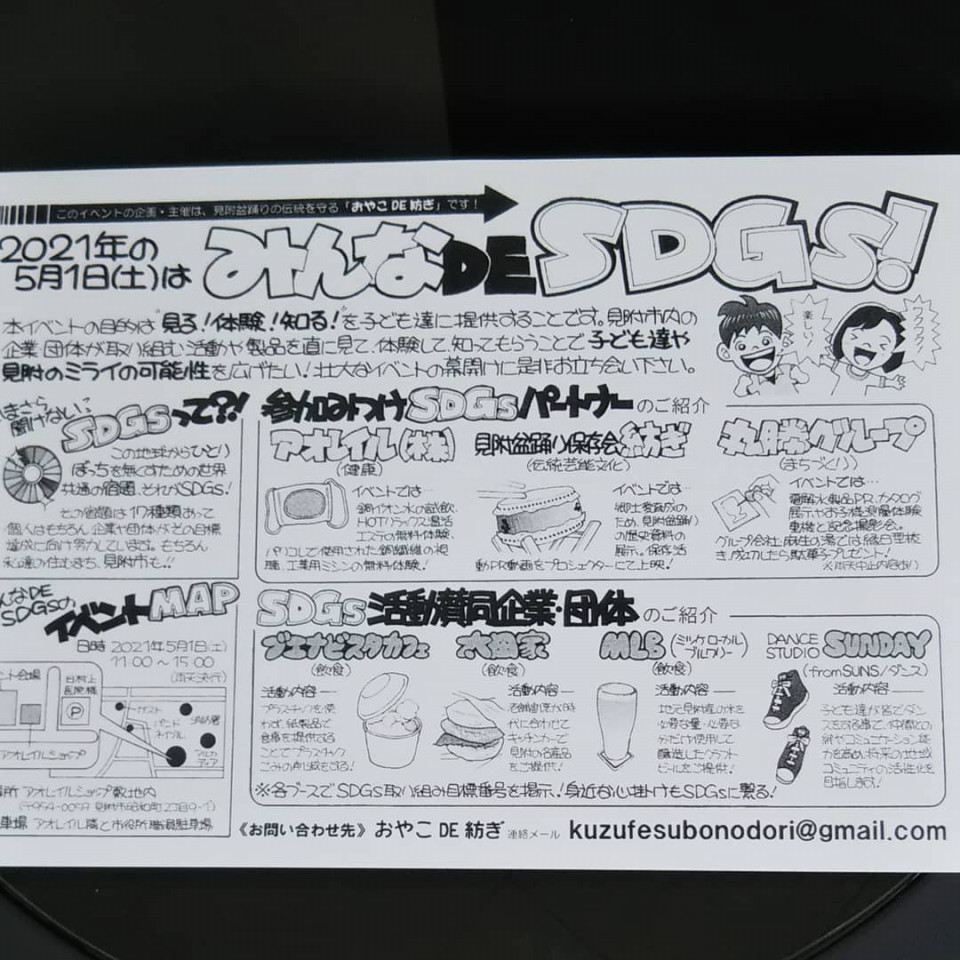 このイベントの企画・主催は、見附盆踊りの伝統を守る「おやこDE紡ぎ」です！
2021年の
5月1日(土)は
みんなDE SDGs!
本イベントの目的は"見る！体験！知る！"を子ども達に提供することです。見附市内の
企業・団体が取り組む活動や製品を直に見て、体験して、知ってもらうことで子ども達や
見附のミライの可能性を広げたい！壮大なイベントの幕開けに是非お立ち会い下さい。
楽しい！
ワクワク！
いまさら
聞けない？
SDGsって？！
この地球からひとり
ぼっちを無くすための世界
共通の宿題、それがSDGs！
その宿題は17種類あって
個人はもちろん、企業や団体がその目標
達成に向け努力しています。もちろん
私達の住むまち、見附市も！！
参加みつけSDGsパートナーのご紹介
アオレイル(株)
(健康)
イベントでは…
銅イオン水の試飲、
HOTリラックス温活
エステの無料体験、
パリコレで使用された銅繊維の視
聴、工業用ミシンの無料体験！
見附盆踊り保存会 紡ぎ
(伝統芸能文化)
イベントでは…
郷土愛育成の
ため、見附盆踊り
の歴史資料の
展示。保存活
動PR動画をプロジェクターにて上映！
丸勝グループ
(まちづくり)
イベントでは…
電解水製品PR、カタログ
展示やお子様測量体験
重機と記念撮影会。
グループ会社、麻生の湯では縁日型抜
き、成功したら駄菓子プレゼント！
※雨天中止内容あり
んなDE
SDGsの
イベントMAP
日時 2021年5月1日(土)
11:00～15:00
(雨天決行)
ント会場
P
アオレイルショップ
場所 アオレイルショップ敷地内
(〒954-0059 見附市昭和町2丁目9-1)
車場 アオレイル隣と市役所職員駐車場
SDGs活動賛同企業・団体のご紹介
ブエナビスタカフェ
(飲食)
活動内容—
プラスチックを使
わず、紙製品で
食事を提供する
ことでプラスチック
ごみの削減をする！
太田家
(飲食)
活動内容—
キッチンカーで
見附の名産品
をご提供！
MLB (ミツケローカル
ブルワリー)
(飲食)
活動内容—
地元見附産の米
を必要な量・必要な
分だけ使用して
醸造したクラフト
ビールをご提供！
DANCE
STUDIO SUNDAY
(fromSUNS/ダンス)
活動内容—
子ども達が皆でダン
スをする事で、仲間との
絆やコミュニケーション能
力を高め、将来の地域
コミュニティの活性化を
目指します！
※各ブースでSDGs取り組み目標番号を掲示！身近な心掛けもSDGsに繋る！
《お問い合わせ先》 おやこDE紡ぎ 連絡メール kuzufesubonodori@gmail.com